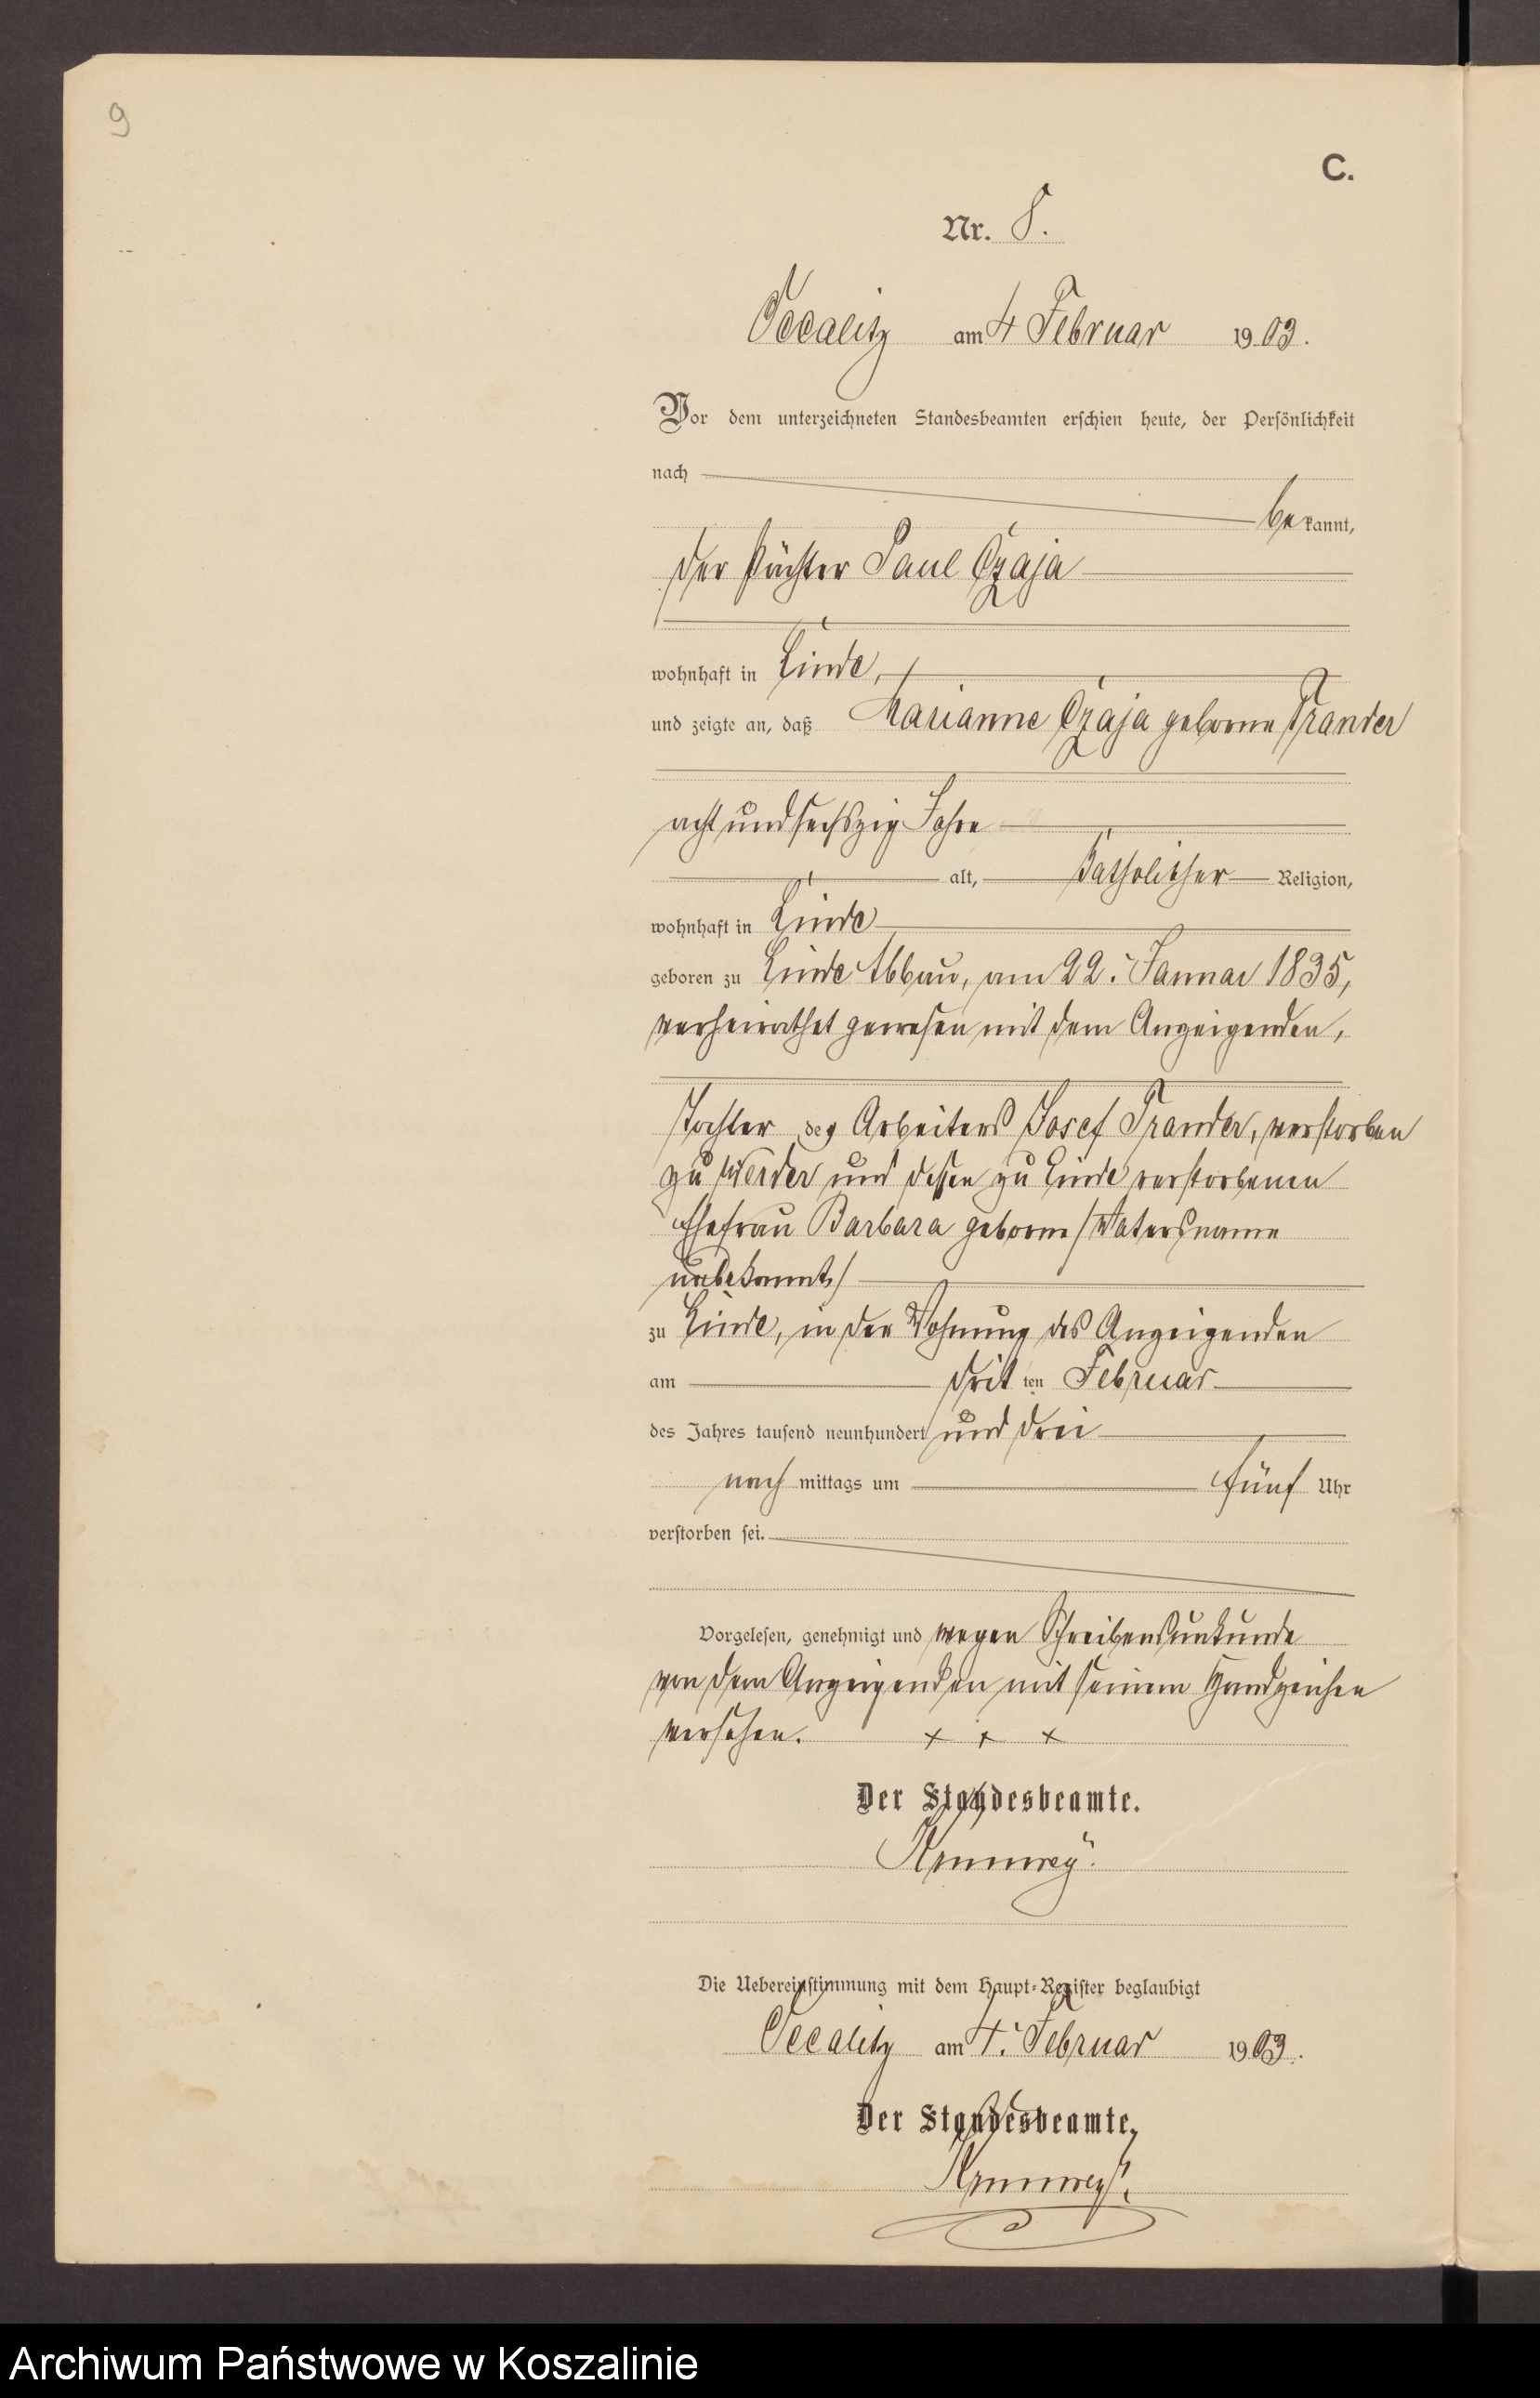 9
C.
Nr. 8.
Occalitz am 4 Februar 1903.
Vor dem unterzeichneten Standesbeamten erschien heute, der Persönlichkeit
nach
bekannt,
der Pächter Paul Czaja
wohnhaft in Linde,
und zeigte an, daß Marianne Czaja geborne Trander
acht und sechszig Jahre
alt, katholischer Religion,
wohnhaft in Linde
geboren zu Linde Abbau, am 22. Januar 1835,
verheirathet gewesen mit dem Anzeigenden,
Tochter des Arbeiters Josef Trander, verstorben
zu Werder und dessen zu Linde verstorbenen
Ehefrau Barbara geborne / Vatersname
unbekannt /
zu Linde, in der Wohnung des Anzeigenden
am dritten Februar
des Jahres tausend neunhundert und drei
nachmittags um fünf Uhr
verstorben sei.
Vorgelesen, genehmigt und wegen Schreibensunkunde
von dem Anzeigenden mit seinem Handzeichen
versehen. x x x
Der Standesbeamte.
Die Uebereinstimmung mit dem Haupt-Register beglaubigt
Occalitz am 4. Februar 1903.
Der Standesbeamte,
Archiwum Państwowe w Koszalinie